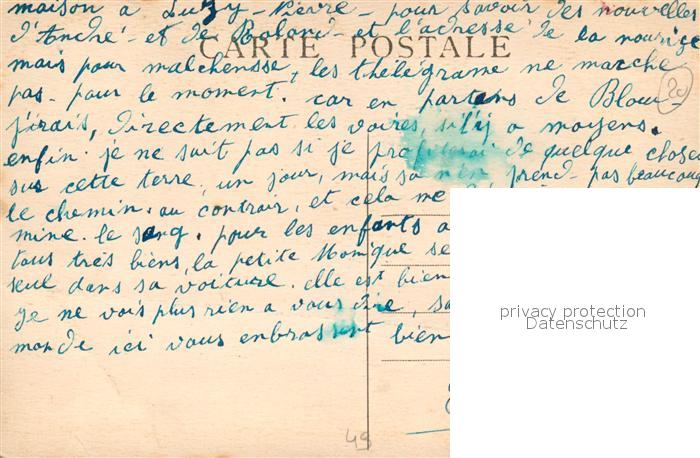 maison a Luzy - Pierre - pour savoir des nouvelles
d'André - et de Roland - et l'adresse de la nourice
CARTE POSTALE
mais pour malchensse, les thélégrame ne marche
pas - pour le moment. car en partans de Blou-
20
j'irais, directement les voires, s'il y a moyens.
enfin. je ne sait pas si je profiterai de quelque chose
sus cette terre, un jour, mais sa n'en prend - pas beaucoup
le chemin. au contrair, et cela me
mine. le sang. pour les enfants
tous très biens, la petite Monique se
seul dans sa voiture. elle est bien
Je ne vois plus rien a vous dire,
monde ici vous enbrassent bien
privacy protection
Datenschutz
49